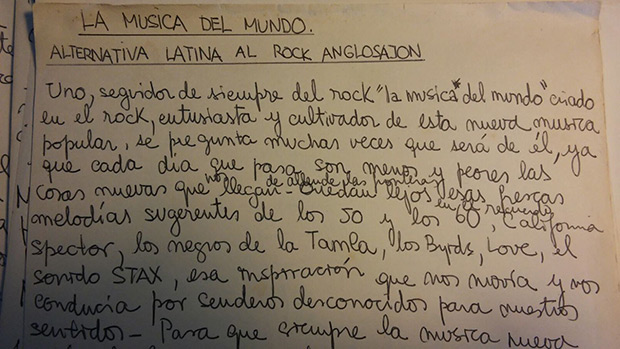 LA MUSICA DEL MUNDO.
ALTERNATIVA LATINA AL ROCK ANGLOSAJON
Uno, seguidor de siempre del rock "la musica del mundo" criado
en el rock, entusiasta y cultivador de esta nueva musica
popular, se pregunta muchas veces que será de él, ya
que cada dia que pasa son menos y peores las
nos de allende las fronteras
cosas nuevas que llegan - Quedan lejos esas frescas
en el recuerdo
melodías sugerentes de los 50 y los 60, California
Spector, los negros de la Tamla, los Byrds, Love, el
sonido STAX, esa inspiración que nos movía y nos
conducia por senderos desconocidos para nuestros
sentidos - Para que siempre la musica nueva